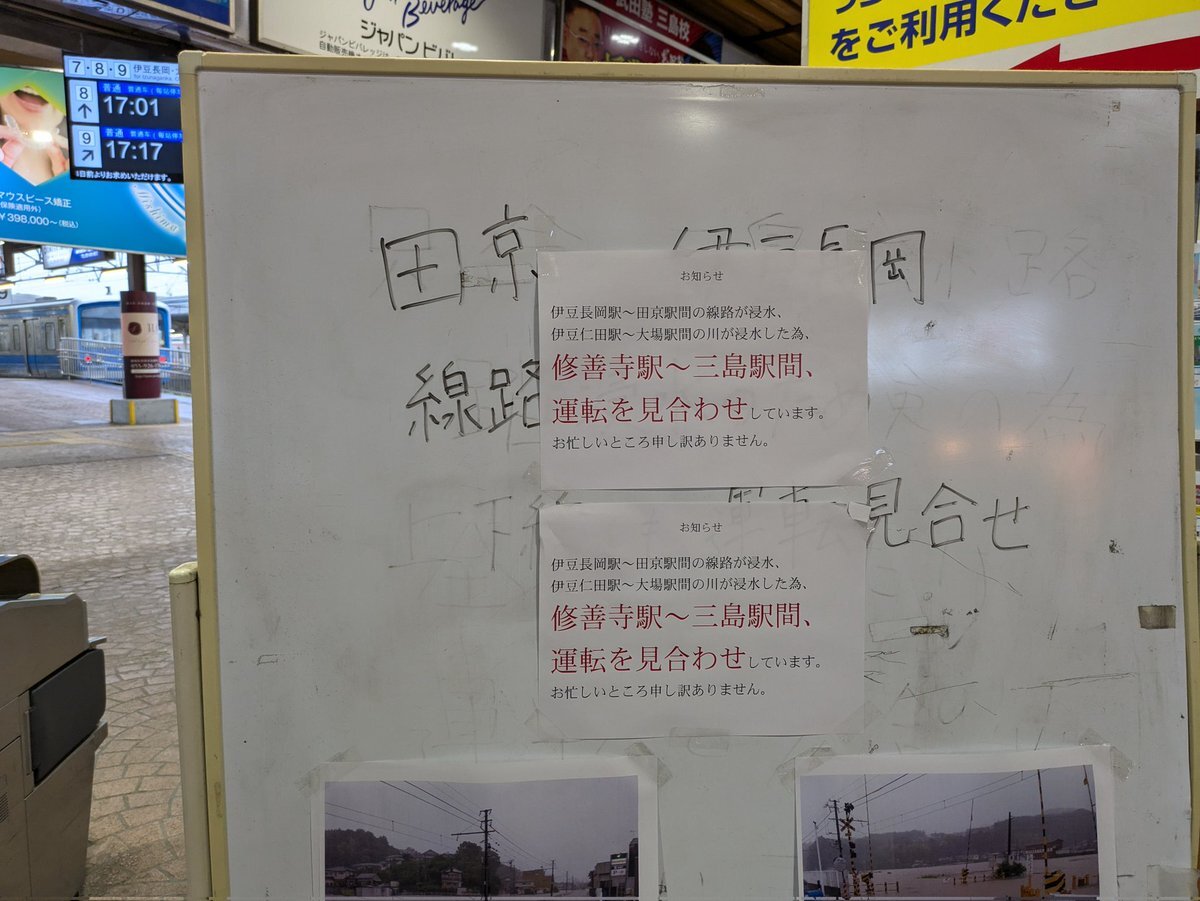 Beverage
ジャパンビバ
ジャパンビバレッジは
自動販売機
武田塾 三島校
をご利用くださ
7・8・9 伊豆長岡・
for Izunagaoka
8 普通 普通車(每站停車
↑ 17:01
9 普通 普通車(每站停車
↗ 17:17
マウスピース矯正
(保険適用外)
¥398.000〜(税込)
田京 伊豆長岡
線路
下線 運転見合せ
お知らせ
伊豆長岡駅～田京駅間の線路が浸水、
伊豆仁田駅～大場駅間の川が浸水した為、
修善寺駅～三島駅間、
運転を見合わせしています。
お忙しいところ申し訳ありません。
お知らせ
伊豆長岡駅～田京駅間の線路が浸水、
伊豆仁田駅～大場駅間の川が浸水した為、
修善寺駅～三島駅間、
運転を見合わせしています。
お忙しいところ申し訳ありません。